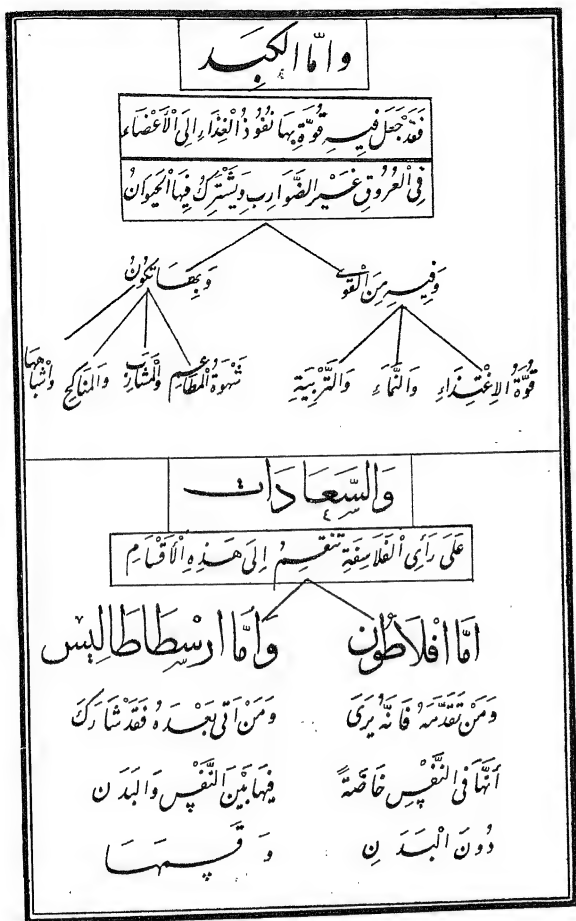 وَامَّا الكَبِد
فَقَدْ جَعَلَ فِيهِ قُوَّةً بِهَا نُفُوذُ الْغِذَاءِ اِلَى الْأَعْضَاءِ
فِى الْعُرُوقِ غَيْرِ الضَّوَارِبِ وَيَشْتَرِكُ فِيهَا الْحَيَوَانُ
وَفِيهِ مِنَ الْقُوَى
وَبِهَا تَكُونُ
قُوَّةُ الِاغْتِذَاءِ وَالنَّمَاءِ وَالتَّرْبِيَةِ
شَهْوَةُ الْمَطَاعِمِ وَالْمَشَارِبِ وَالْمَنَاكِحِ وَاَشْبَاهِهَا
وَالسَّعَادَات
عَلَى رَأْىِ الْفَلَاسِفَةِ تَنْقَسِمُ اِلَى هَذِهِ الْأَقْسَامِ
امَّا افْلَاطُون
وَمَنْ تَقَدَّمَهُ فَانَّهُ يُرَى
أَنَّهَا فِى النَّفْسِ خَاصَّةً
دُونَ الْبَدَنِ
وَأمَّا ارْسِطَاطَالِيس
وَمَنْ اَتَى بَعْدَهُ فَقَدْ شَارَكَ
فِيهَا بَيْنَ النَّفْسِ وَالبَدَنِ
وَقَسَمَهَا